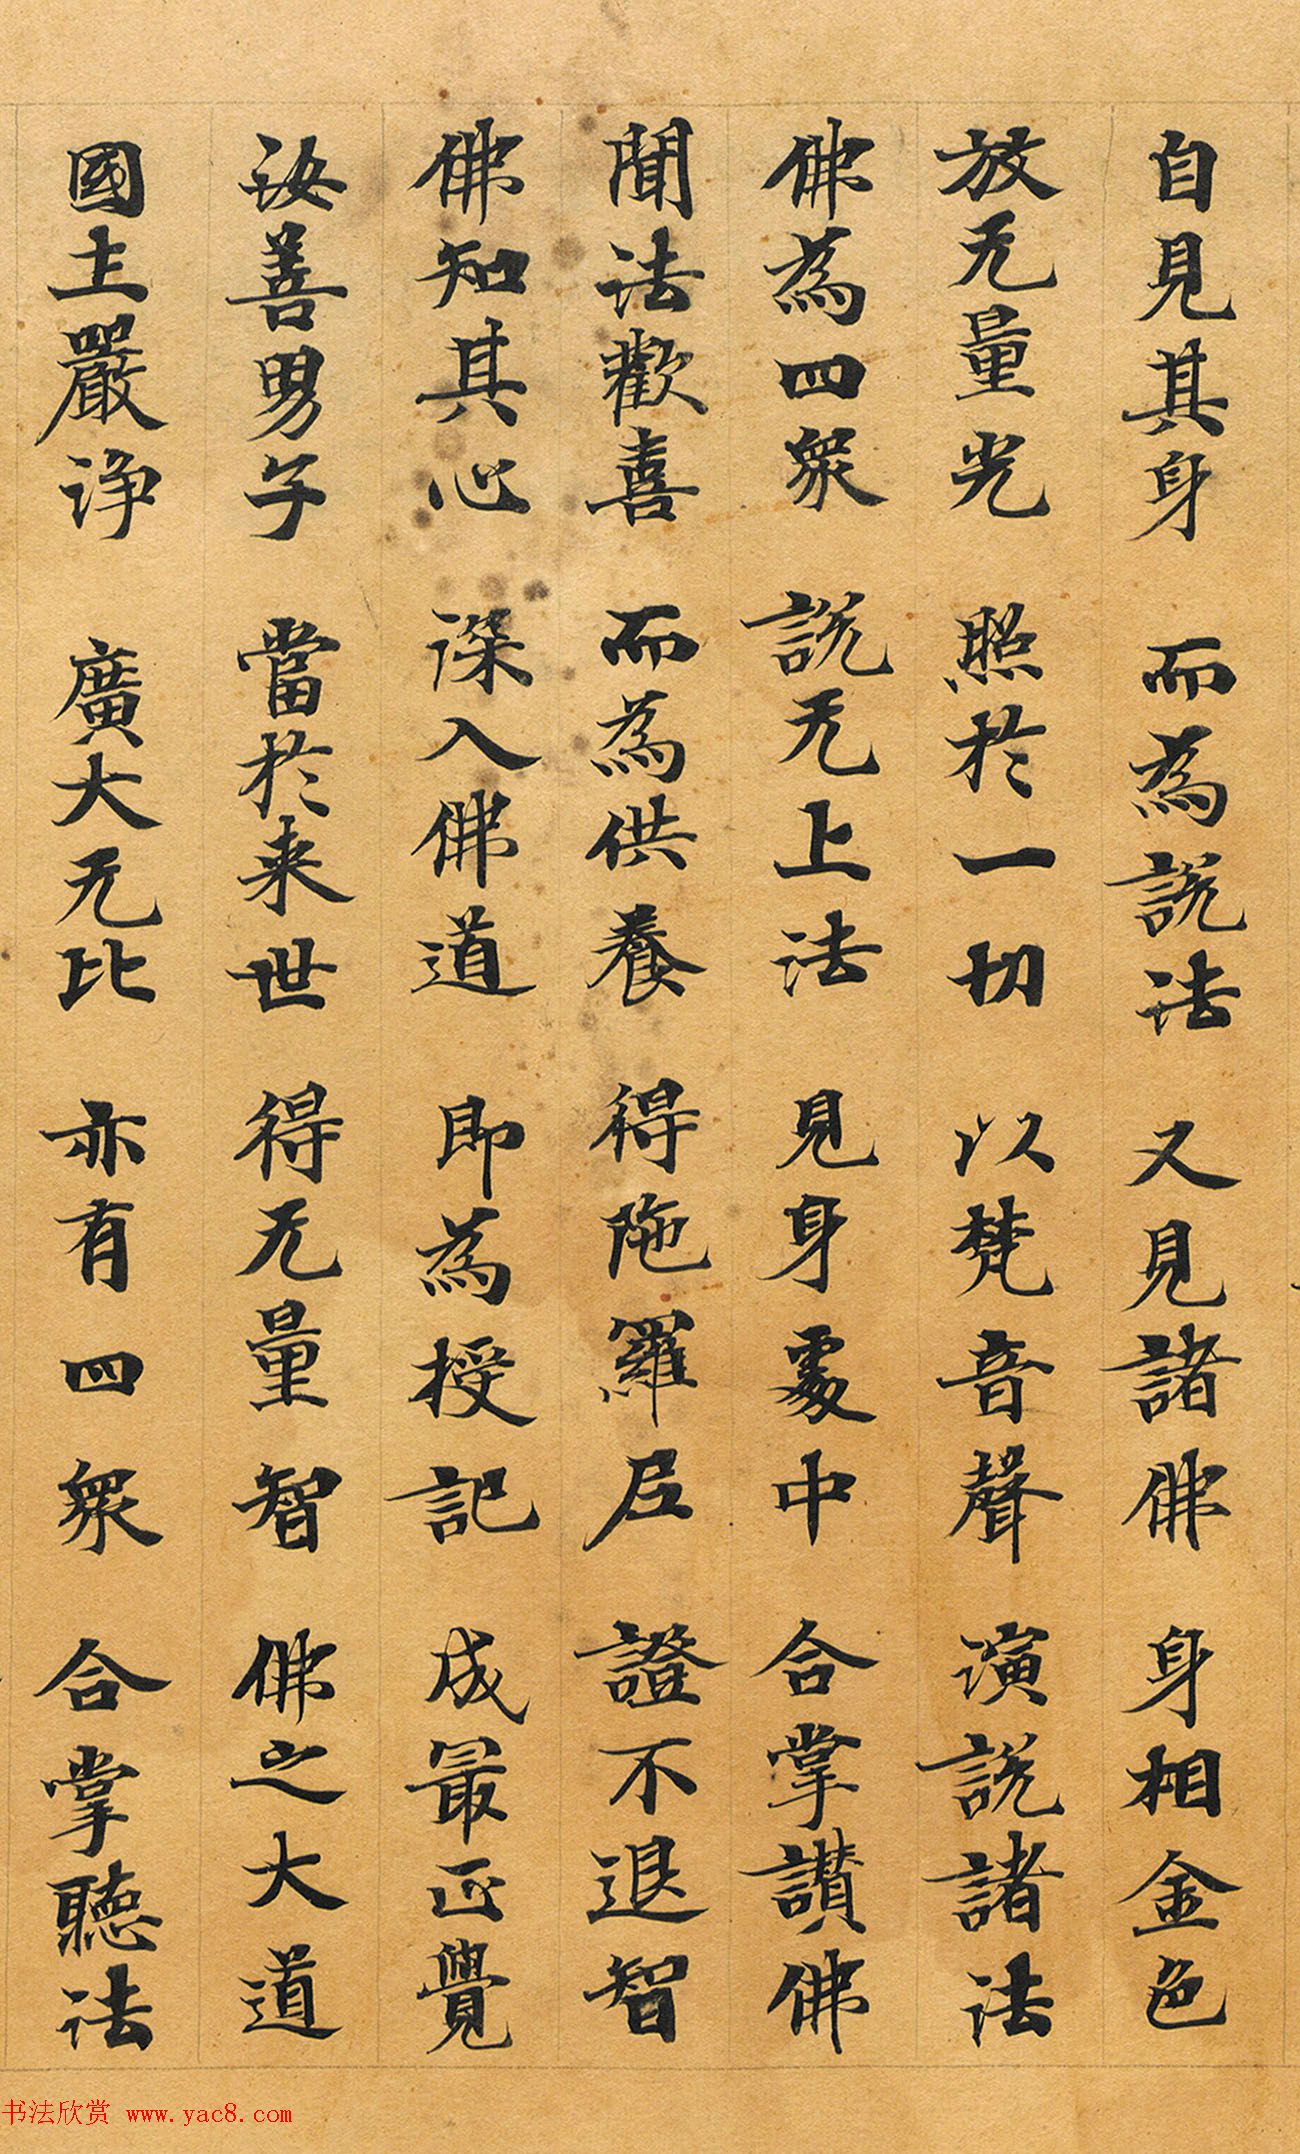 自見其身 而為說法 又見諸佛 身相金色
放无量光 照於一切 以梵音聲 演說諸法
佛為四衆 說无上法 見身處中 合掌讚佛
聞法歡喜 而為供養 得陁羅尼 證不退智
佛知其心 深入佛道 即為授記 成最正覺
汝善男子 當於来世 得无量智 佛之大道
國土嚴淨 廣大无比 亦有四衆 合掌聽法
书法欣赏 www.yac8.com